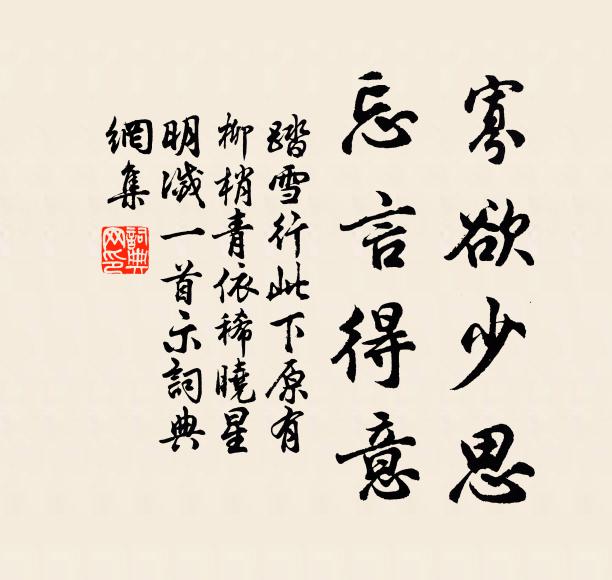 寡欲少思
忘言得意
踏雪行此下原有
柳梢青依稀曉星
明滅一首示詞典
網集
詞典網印